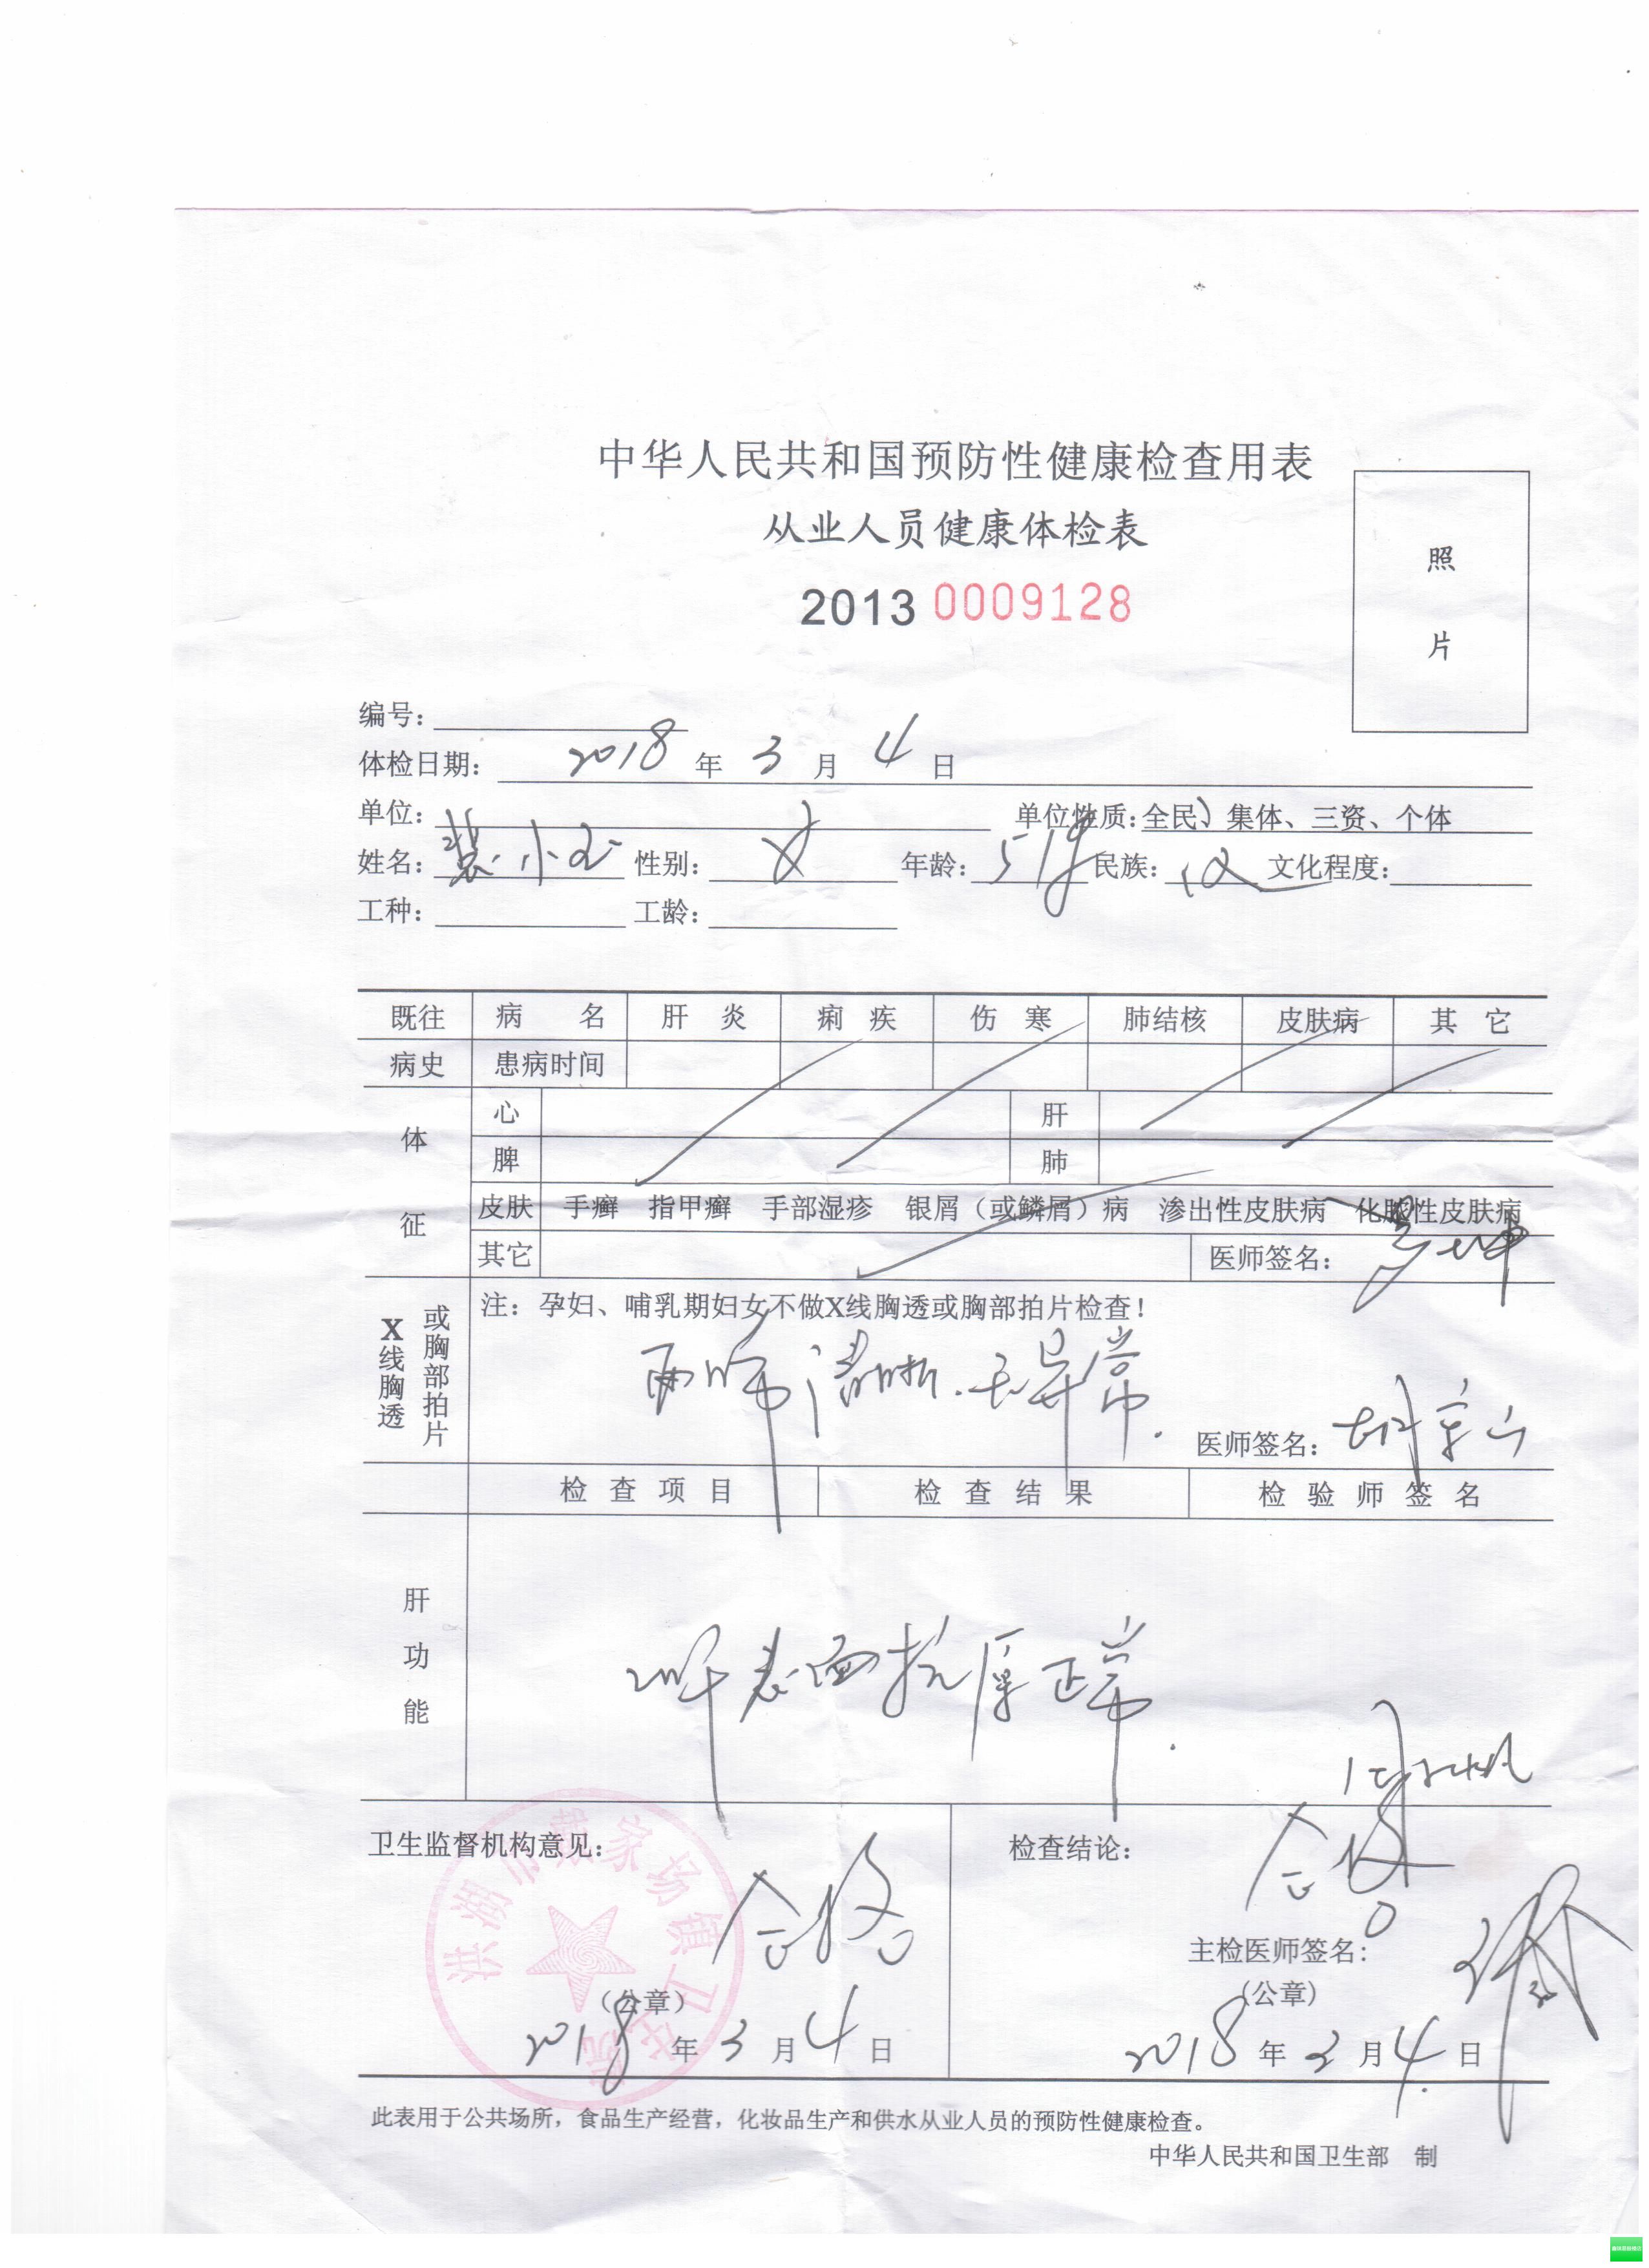 中华人民共和国预防性健康检查用表
从业人员健康体检表
2013 0009128
照
片
编号：
体检日期： 2018 年 3 月 4 日
单位： 单位性质：全民、集体、三资、个体
姓名： 小玉 性别： 女 年龄： 51岁 民族： 汉 文化程度：
工种： 工龄：
既往 病 名 肝 炎 痢 疾 伤 寒 肺结核 皮肤病 其 它
病史 患病时间
体 心 肝
脾 肺
征 皮肤 手癣 指甲癣 手部湿疹 银屑（或鳞屑）病 渗出性皮肤病 化脓性皮肤病
其它 医师签名：
X线胸透 或胸部拍片 注：孕妇、哺乳期妇女不做X线胸透或胸部拍片检查！
两肺清晰.无异常.
医师签名：
检 查 项 目 检 查 结 果 检 验 师 签 名
肝
功
能
肝表面抗原正常.
卫生监督机构意见： 合格
检查结论： 合格
主检医师签名：
（公章）
(公章)
2018 年 3 月 4 日
2018 年 3 月 4 日
洪湖市戴家场镇卫生院
此表用于公共场所，食品生产经营，化妆品生产和供水从业人员的预防性健康检查。
中华人民共和国卫生部 制